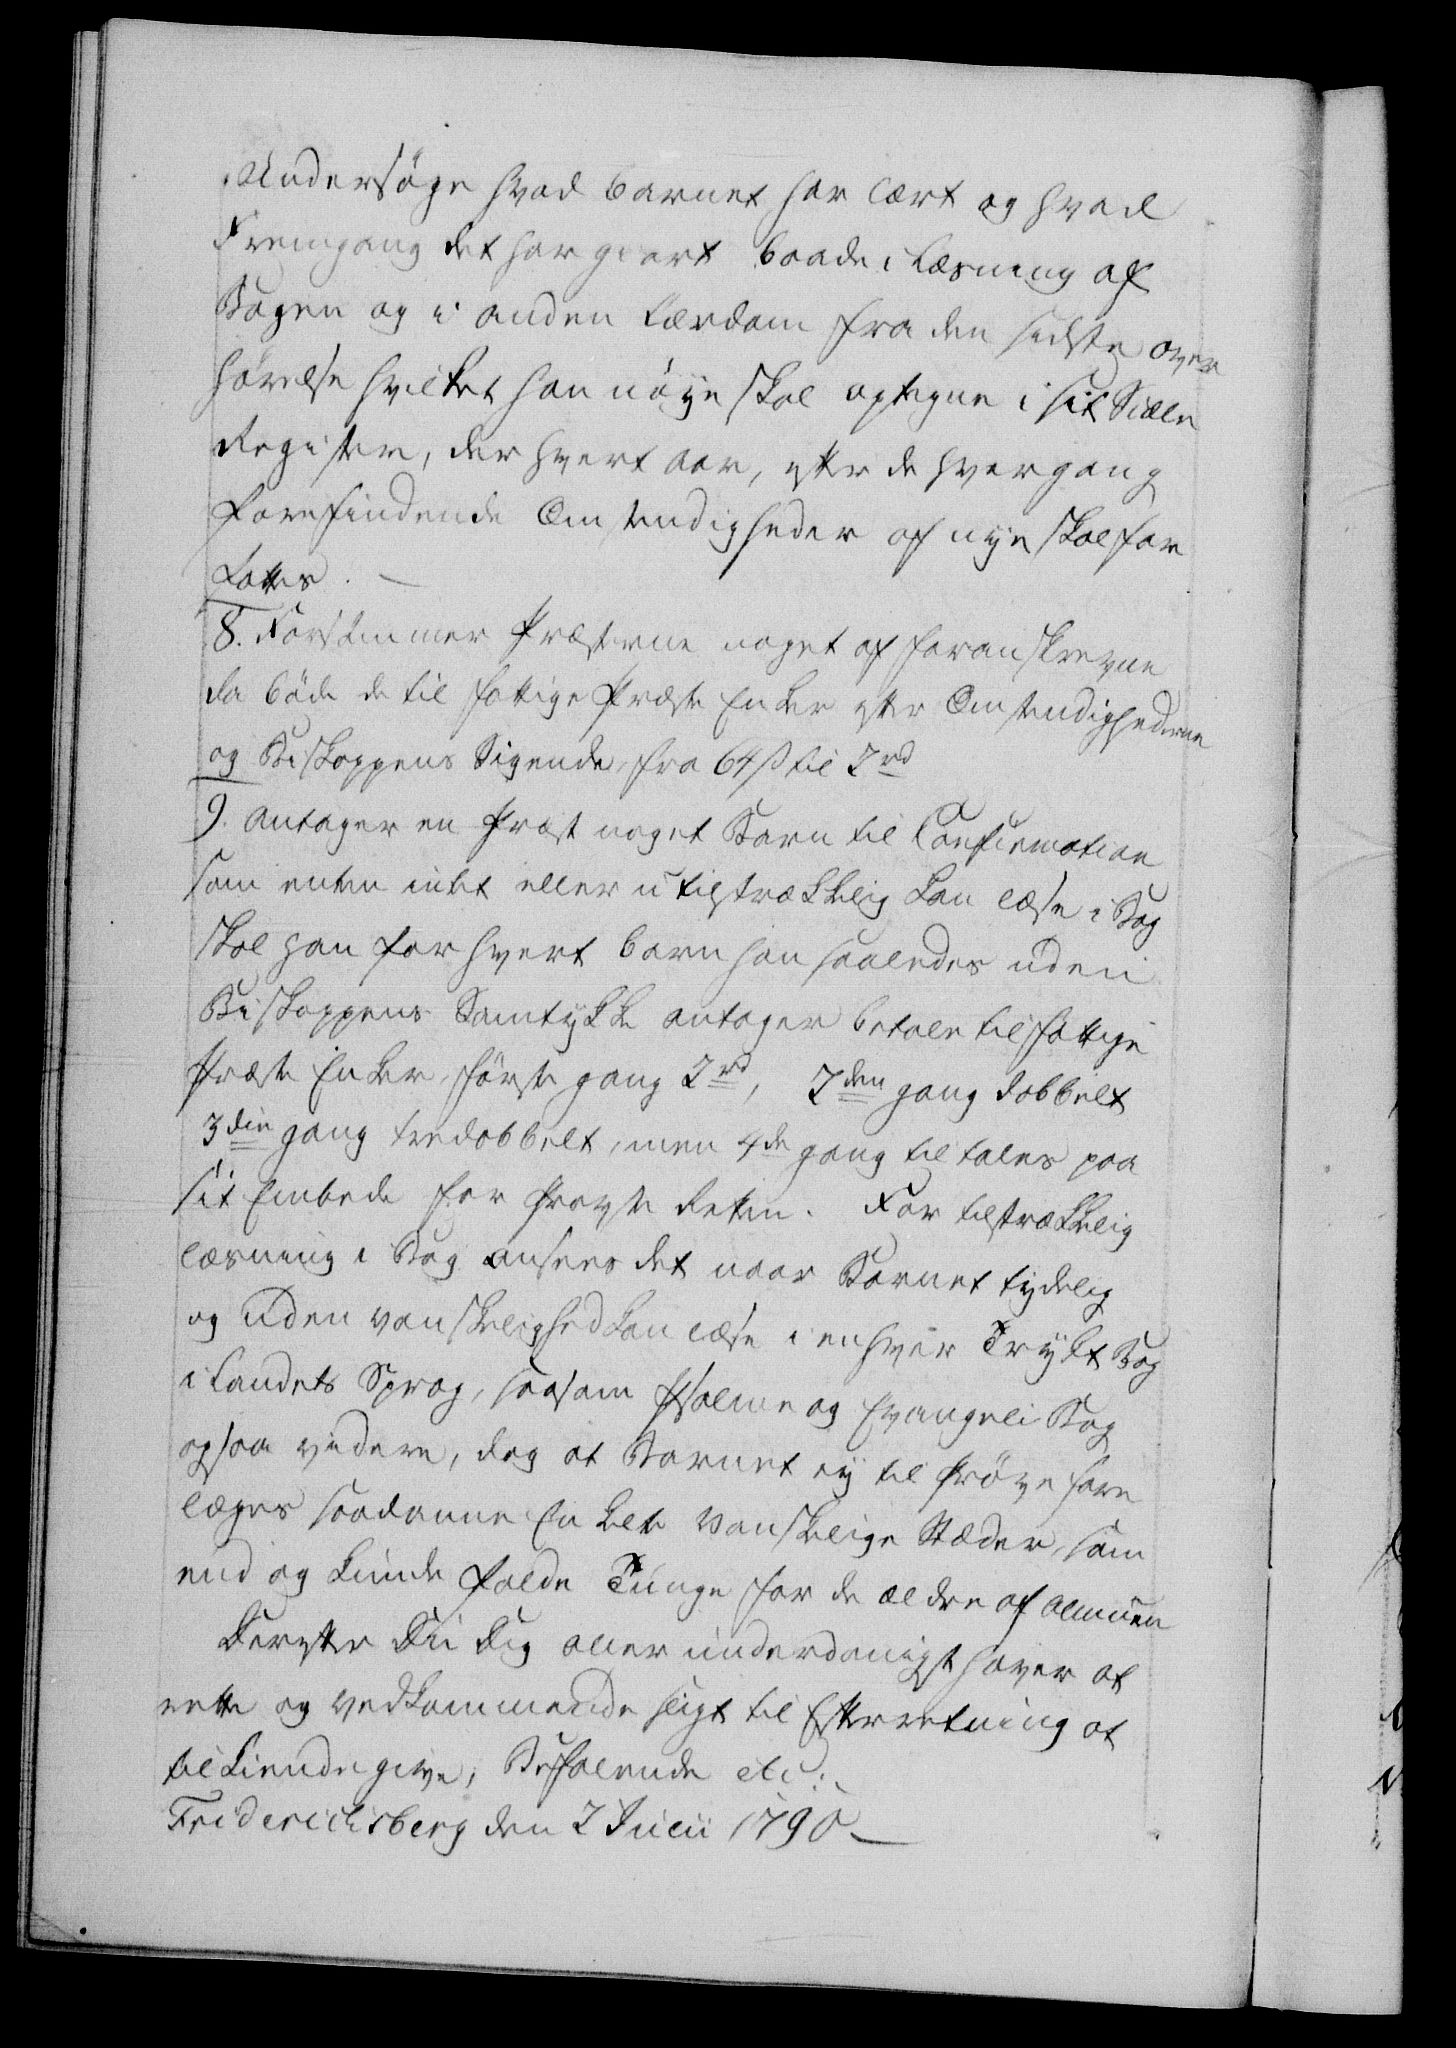 Undersøge hvad barnet har lært og hvad
Fremgang det har giort baade i læsning af
Bogen og i anden Lærdom fra den sidste over
hørelse hvilket han nøye skal optegne i sit Siæle
Register, der hvert aar, efter de hver gang
forefindende Omstendigheder af nye skal for
fattes. —
8. Forsømmer Præsterne noget af foranskrevne
da bøde de til fattige Præste Enker efter Omstendighederne
og Biskoppens Sigende, fra 64 ß til 2 rd
9. Antager en Præst noget Barn til Confirmation
som enten intet eller utilstrækkelig kan læse i Bog
skal han for hvert barn han saaledes uden
Biskoppens Samtykke antager betale til fattige
Præste Enker første gang 2 rd, 2den gang dobbelt
3die gang tredobbelt, men 4de gang tiltales paa
sit Embede for Provste Retten. For tilstrækkelig
læsning i Bog ansees det naar Barnet tydelig
og uden vanskelighed kan læse i enhver Trykt Bog
i Landets Sprog, saasom Psalme og Evangeli Bog
og saa videre, dog at Barnet ey til Prøve fore
læges saadanne Enkelte Vanskelige Stæder, som
end og kunde falde Tunge for de ældre af almuen
Derefter Du Dig allerunderdanigst haver at
rette og vedkommende sligt til Efterretning at
tilkiendegive, Befalende etc:
Friderichsberg den 2 Julii 1790 —